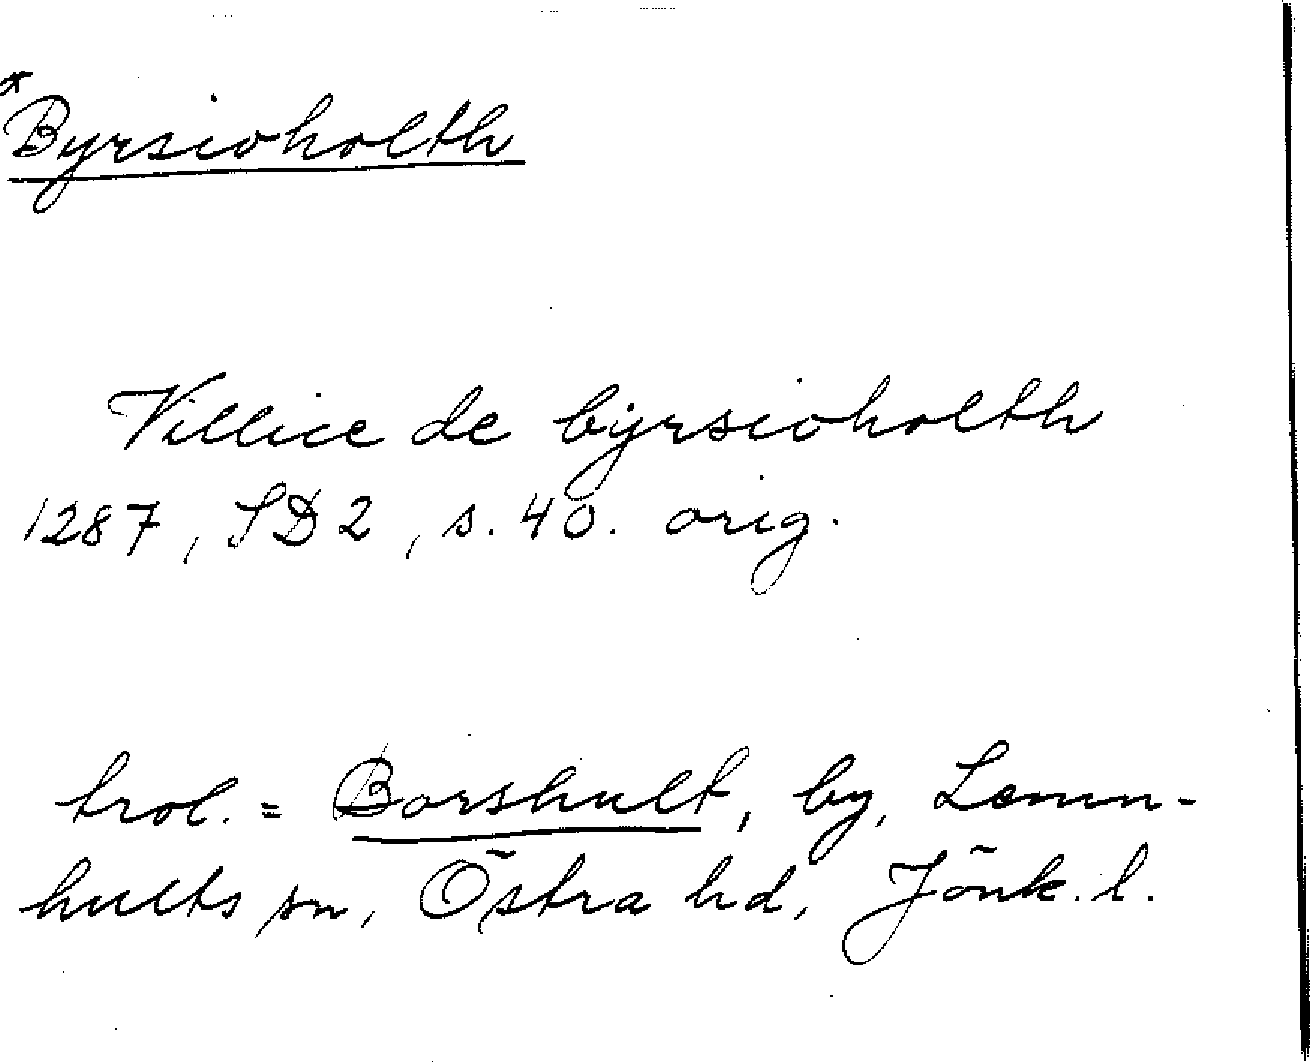 *Byrsioholth
Villice de byrsioholth
1287, SD 2, s. 40. orig.
trol. = Borshult, by, Lemn-
hults sn, Östra hd, Jönk. l.